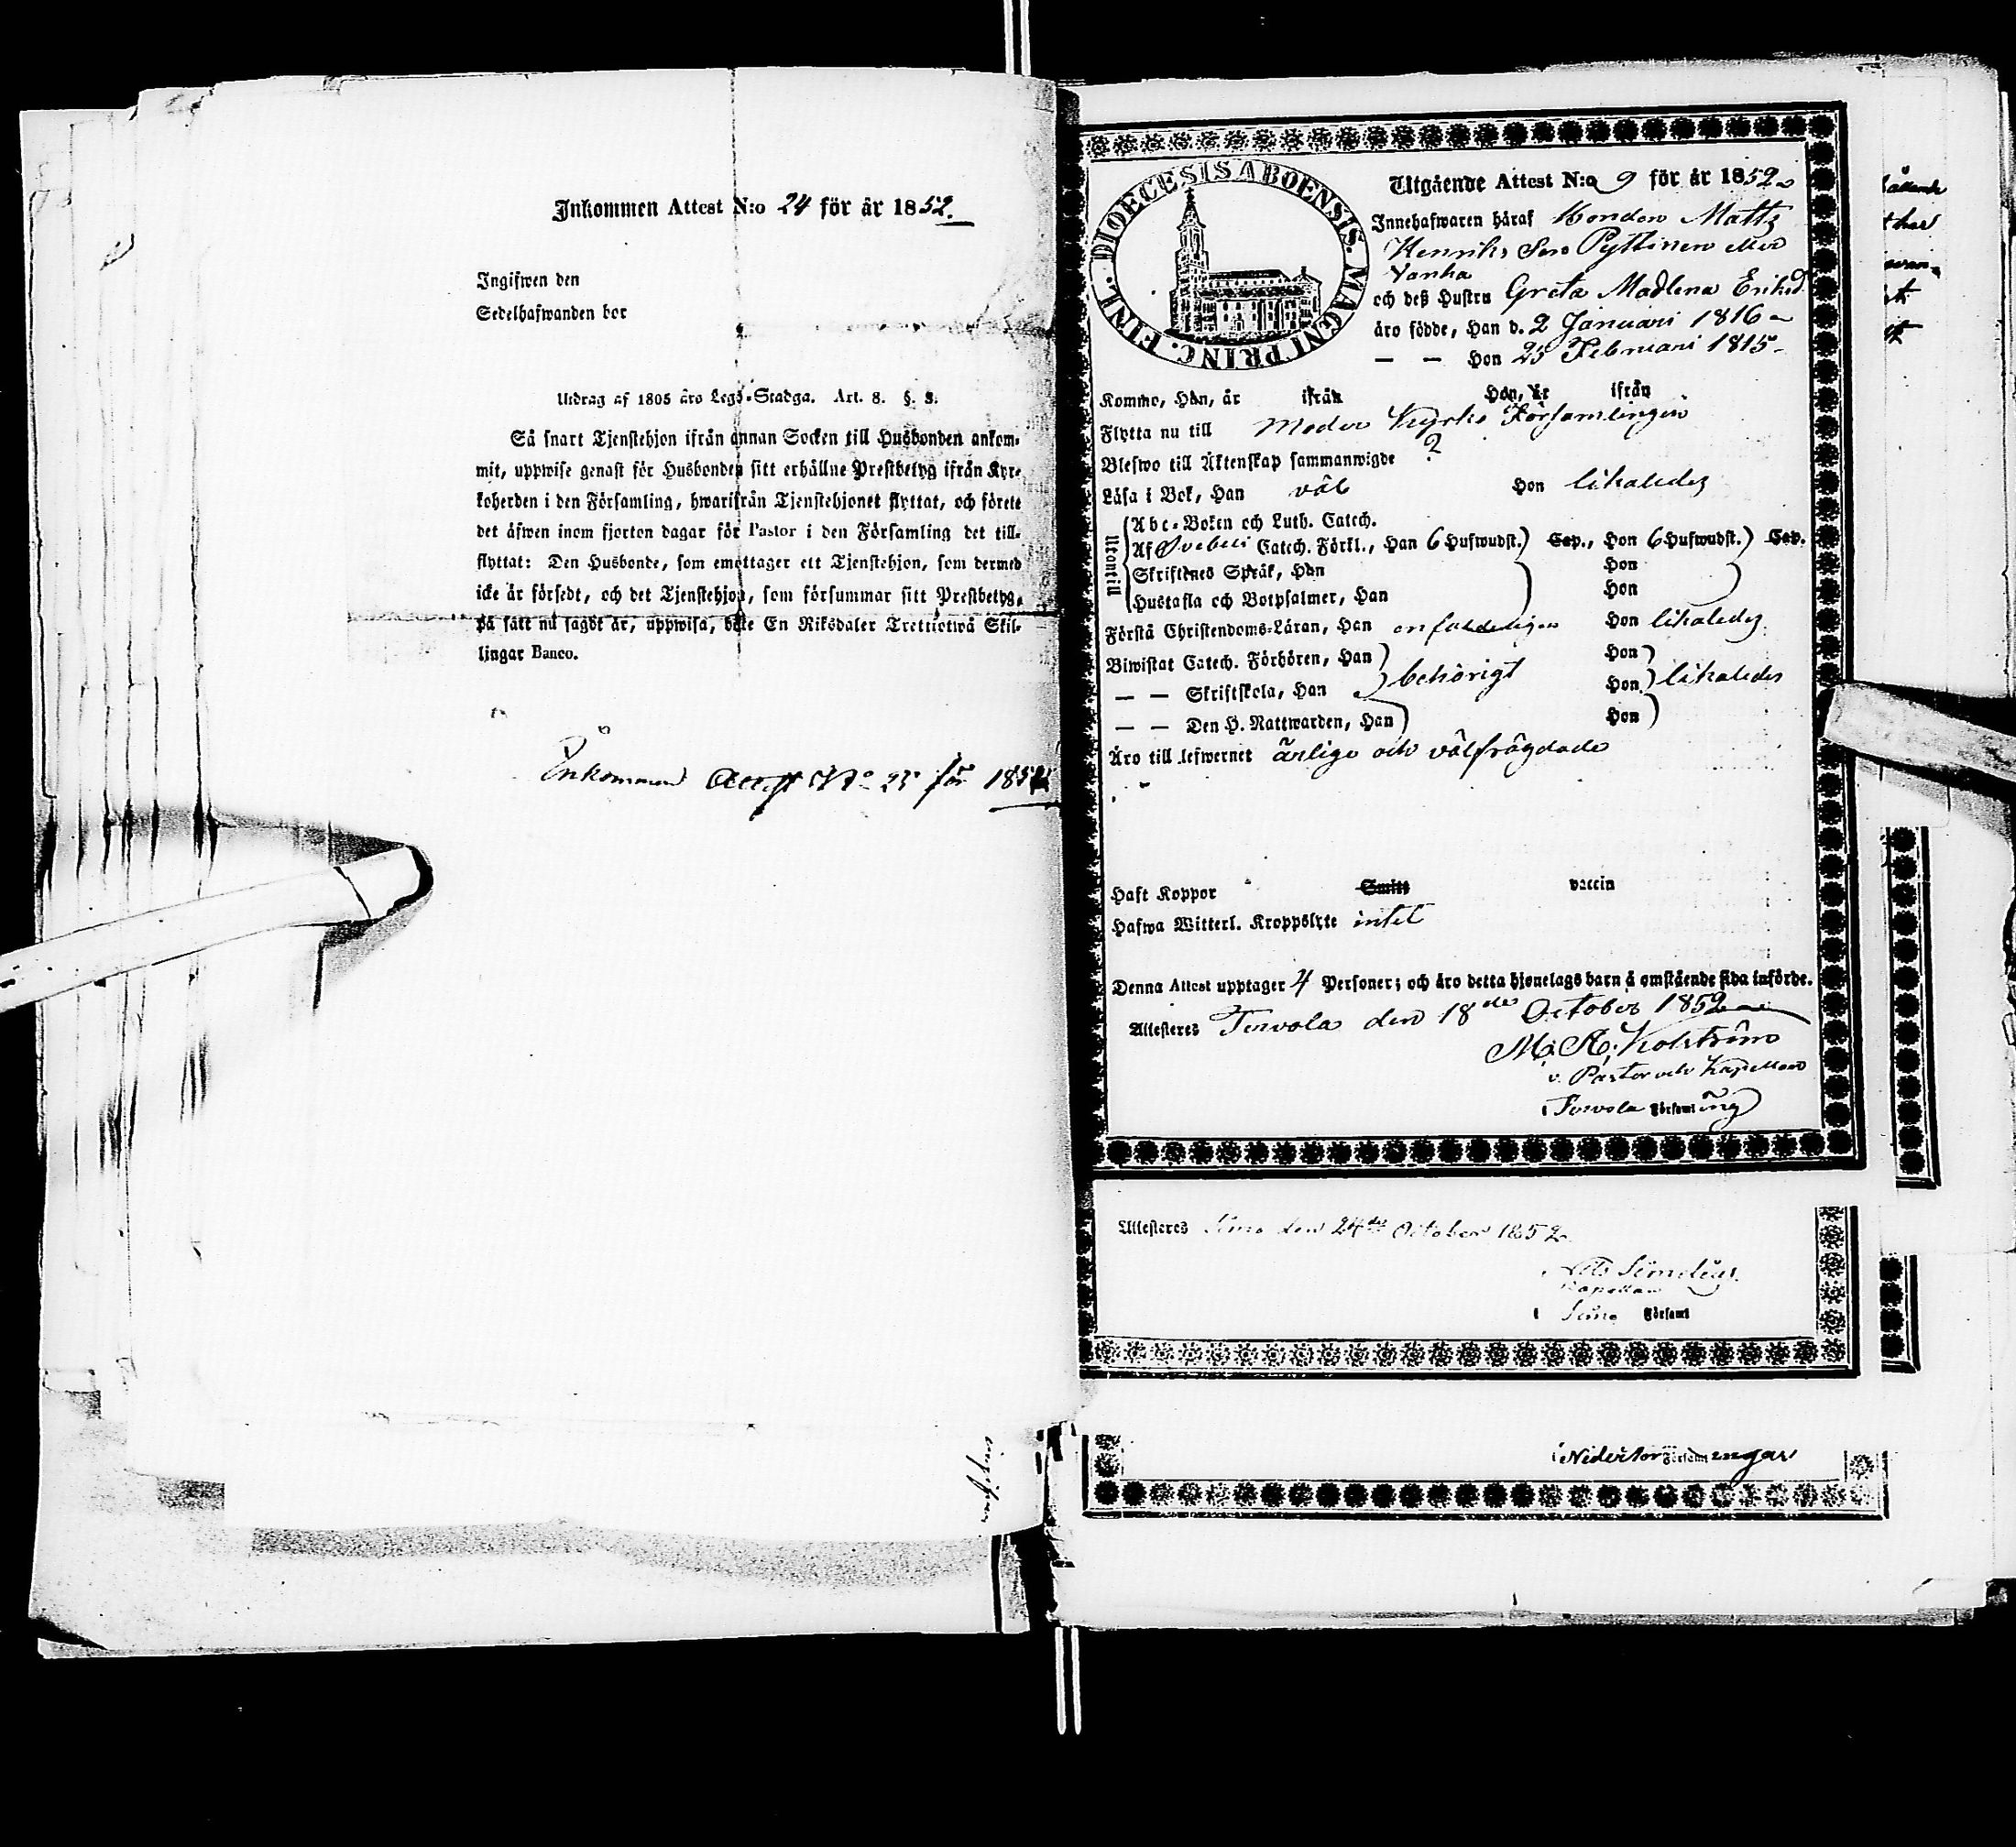 Inkommen Attest N:o 24 för år 1852.
Ingifwen den
Sedelhafwanden bor
Utdrag af 1805 års Lego-Stadga. Art. 8. §. 8.
Så snart Tjenstehjon ifrån annan Socken till Husbonden ankom-
mit, uppwise genast för Husbonden sitt erhållne Prestbetyg ifrån Kyr-
koherden i den Församling, hwarifrån Tjenstehjonet flyttat, och förete
det äfwen inom fjorton dagar för Pastor i den Församling det till-
flyttat: Den Husbonde, som emottager ett Tjenstehjon, som dermed
icke är försedt, och det Tjenstehjon, som försummar sitt Prestbetyg,
på sätt nu sagdt är, uppwisa, böte En Riksdaler Trettiotwå Skil-
lingar Banco.
Inkommen Attest No 25 för 1852
DIOECESIS ABOENSIS. MAGNI PRINC. FINL.
Utgående Attest N:o 9 för år 1852
Innehafwaren häraf Bonden Matts
Henriks Son Pyttinen
Vanha
och deß Hustru Greta Madlena Eriksd
äro födde, Han d. 2 Januari 1816
— — Hon 25 Februari 1815
Komne, Han, år ifrån Hon, år ifrån
Flytta nu till Moder Kyrko Församlingen
Blefwo till Äktenskap sammanwigde ?
Läsa i Bok, Han väl Hon likaledes
Utantill
Abc-Boken och Luth. Catech.
Af Svebelii Catech. Förkl., Han 6 Hufwudst.) Cap., Hon 6 Hufwudst.) Cap.
Skriftenes Språk, Han Hon
Hustafla och Botpsalmer, Han Hon
Förstå Christendoms-Läran, Han enfaldeligen Hon likaledes
Biwistat Catech. Förhören, Han Hon
— — Skriftskola, Han behörigt Hon likaledes
— — Den H. Nattwarden, Han Hon
Äro till lefwernet ärlige och välfrägdade
Haft Koppor Smitt vaccin
Hafwa Witterl. Kroppslyte intet
Denna Attest upptager 4 Personer; och äro detta hjonelags barn å omstående sida införde.
Attesteres Tervola den 18de October 1852
M. A. Kolström
v. Pastor och Kapellan
i Tervola Församling
Attesteres Simo den 24de October 1852
Kapellan
i Simo Församl
i Nedertor Församl ingar